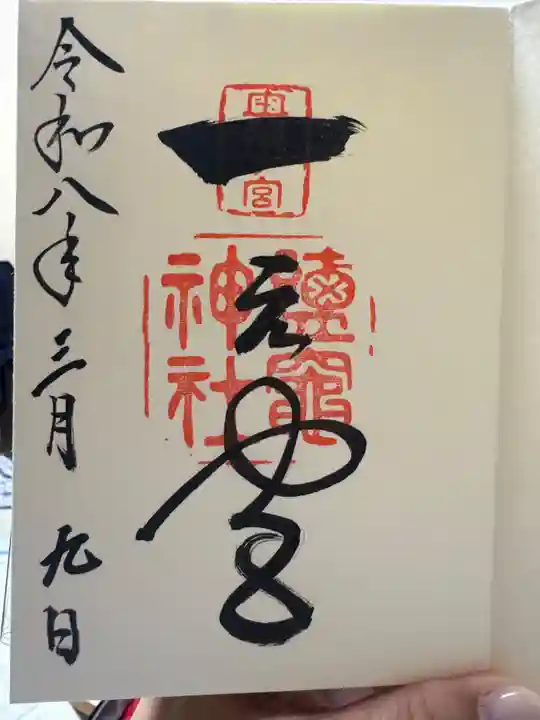 一之宮
鹽竈
神社
令和八年三月九日